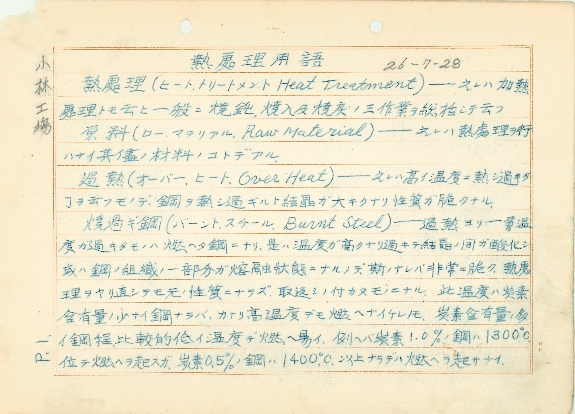 小林工場
熱處理用語 26-7-28
熱處理(ヒート、トリートメント Heat Treatment)——之レハ加熱
處理トモ云ヒ一般ニ燒鈍、燒入及燒戻ノ三作業ヲ総括シテ云フ
原料(ロー、マテリアル、Raw Material)——之レハ熱處理ヲ行
ハナイ其儘ノ材料ノコトデアル
過熱(オーバー、ヒート、Over Heat)——之レハ高イ温度ニ熱シ過ギタ
ヿヲ云フモノデ、鋼ヲ熱シ過ギルト結晶ガ大キクナリ性質ガ脆クナル、
燒過ギ鋼(バーント、スチール、Burnt Steel)——過熱ヨリ一層温
度ガ過ギタモノハ燃ヘタ鋼ニナリ、是ハ温度ガ高クナリ過ギテ結晶ノ間ガ酸化シ
或ハ鋼ノ組織ノ一部分ガ熔融狀態ニナルノデ斯ウナレバ非常ニ脆ク、熱處
理ヲヤリ直シテモ元ノ性質ニナラズ、取返シノ付カヌモノニナル、此温度ハ炭素
含有量ノ少ナイ鋼ナラバ、カナリ高温度デモ燃ヘナイケレドモ、炭素含有量ノ多
イ鋼程比較的低イ温度デ燃ヘ易イ、例ヘバ炭素1.0%ノ鋼ハ1300°C
位デ燃ヘヲ起スガ、炭素0.5%ノ鋼ハ1400°C、以上ナラデハ燃ヘヲ起サナイ、
P.1.